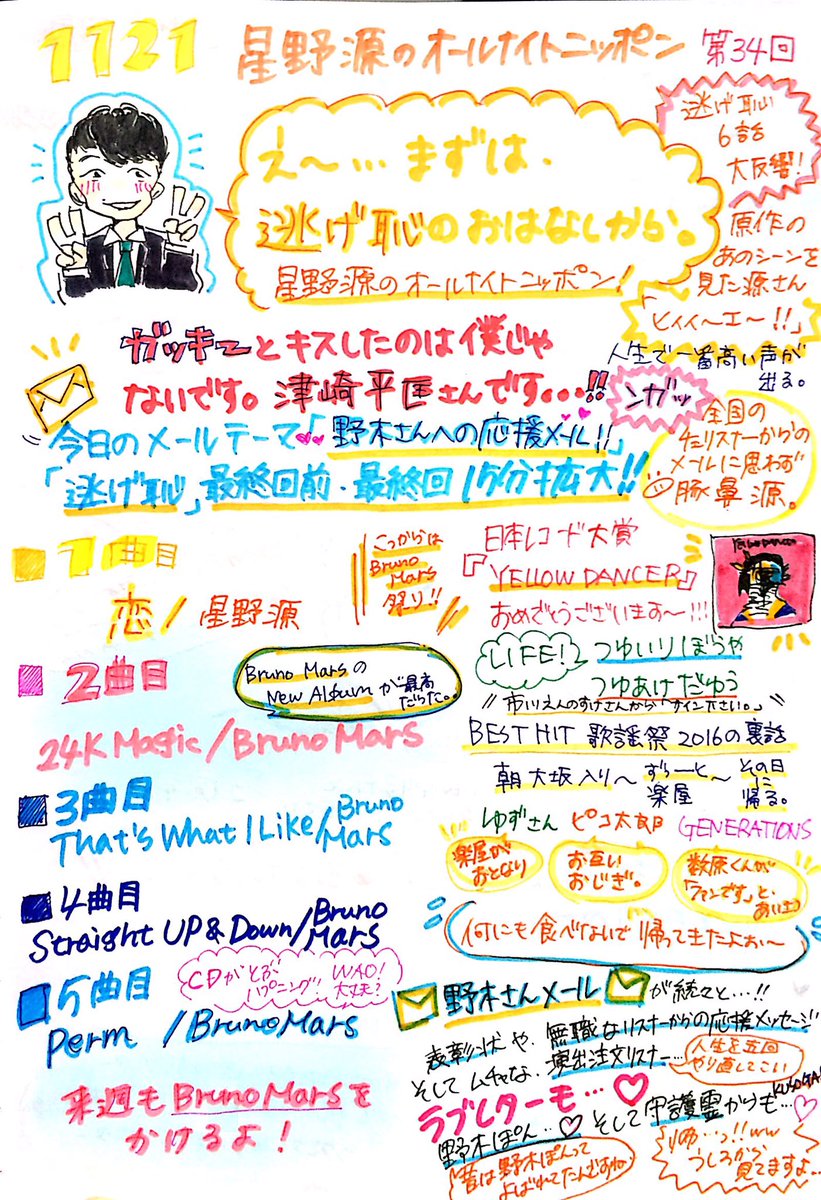 1121 星野源のオールナイトニッポン 第34回
え〜…まずは、
逃げ恥のおはなしから。
星野源のオールナイトニッポン!
逃げ恥
6話
大反響!
原作の
あのシーンを
見た源さん
「ヒィィ〜エ〜!!」
人生で一番高い声が
出る。
ガッキーとキスしたのは僕じゃ
ないです。津崎平匡さんです…!!
ンガッ
全国の
リスナーからの
メールに思わず
豚鼻源。
今日のメールテーマ「野木さんへの応援メール!!」
「逃げ恥」最終回前・最終回 15分拡大!!
1曲目
恋/星野源
こっからは
Bruno
Mars
祭り!!
日本レコード大賞
『YELLOW DANCER』
おめでとうございます〜!!!
YELLOW DANCER
2曲目
24K Magic/Bruno Mars
Bruno Marsの
New Albumが最高
だった。
LIFE! つゆいりぼうや
つゆあけだゆう
市川えんのすけさんから「サイン下さい。」
BEST HIT 歌謡祭2016の裏話
朝大坂入り〜ずら〜と〜その日
楽屋
に
帰る。
3曲目
That's What I Like/Bruno
Mars
ゆずさん ピコ太郎 GENERATIONS
楽屋が
おとなり
お互い
おじぎ。
数原くんが
「ファンです」と、
あいさつ
何にも食べないで帰って来たよぉ〜
4曲目
Straight UP & Down/Bruno
Mars
5曲目
Perm /Bruno Mars
CDがとぶ
ハプニング! WAO!
大丈夫?
来週もBruno Marsを
かけるよ!
野木さんメール が続々と…!!
表彰状や、無職なリスナーからの応援メッセージ
そしてムチャな、演出注文リスナー…
人生を五回
やり直してこい
ラブレターも…♡
野木ぽん…♡ そして守護霊からも…♡
昔は野木ぽんって
よばれてたんですね
うしろから
見てますよ…